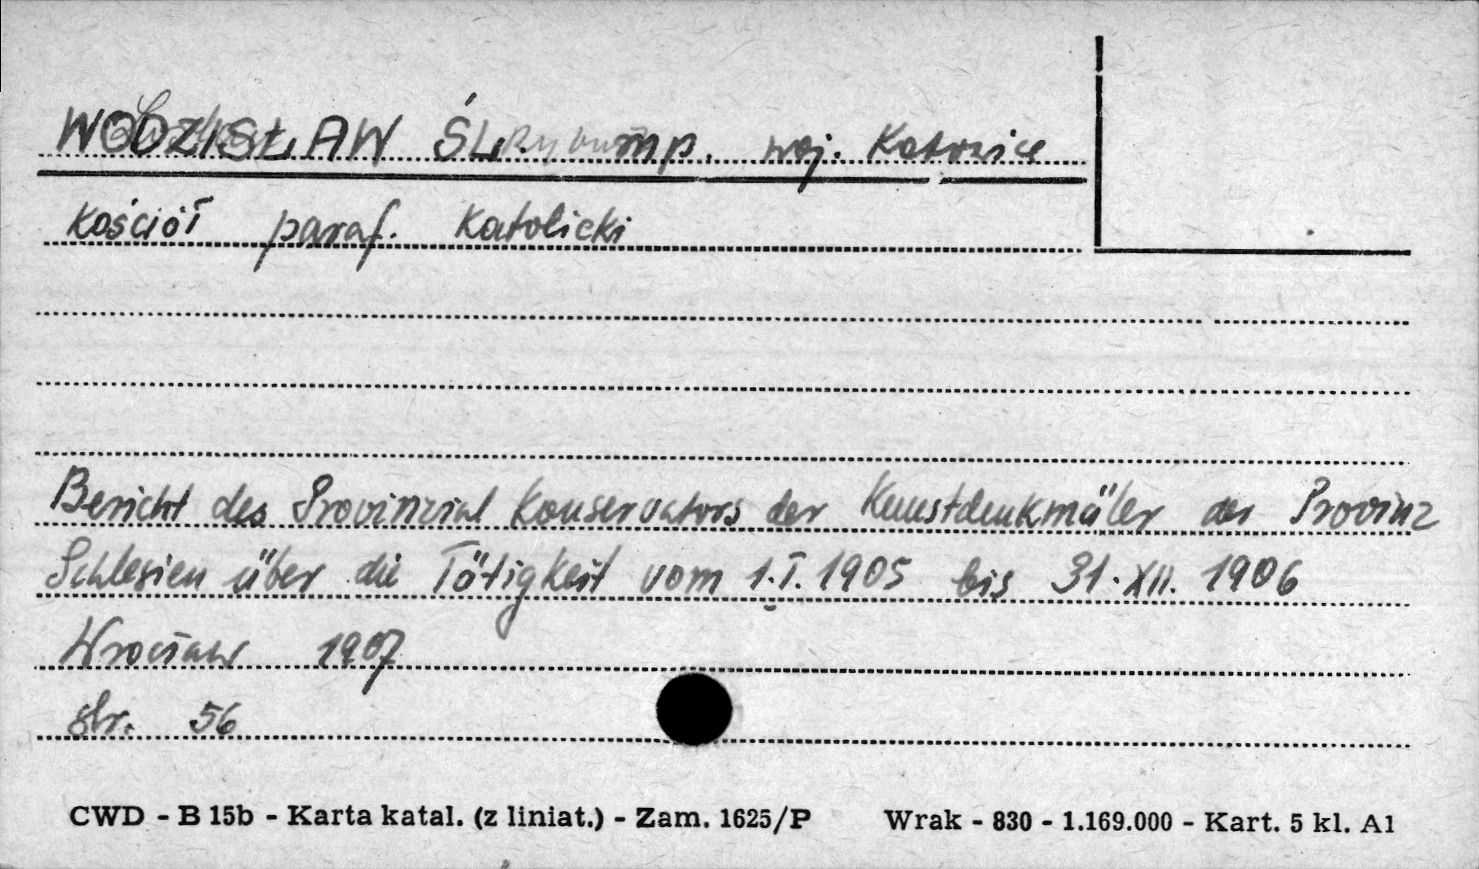 WODZISŁAW ŚL. mp. woj. Katowice
Kościół paraf. Katolicki
Bericht des Provinzial Konservators der Kunstdenkmäler der Provinz
Schlesien über die Tätigkeit vom 1.I.1905 bis 31.XII. 1906
Wrocław 1907
str. 56
CWD - B 15b - Karta katal. (z liniat.) - Zam. 1625/P Wrak - 830 - 1.169.000 - Kart. 5 kl. A1